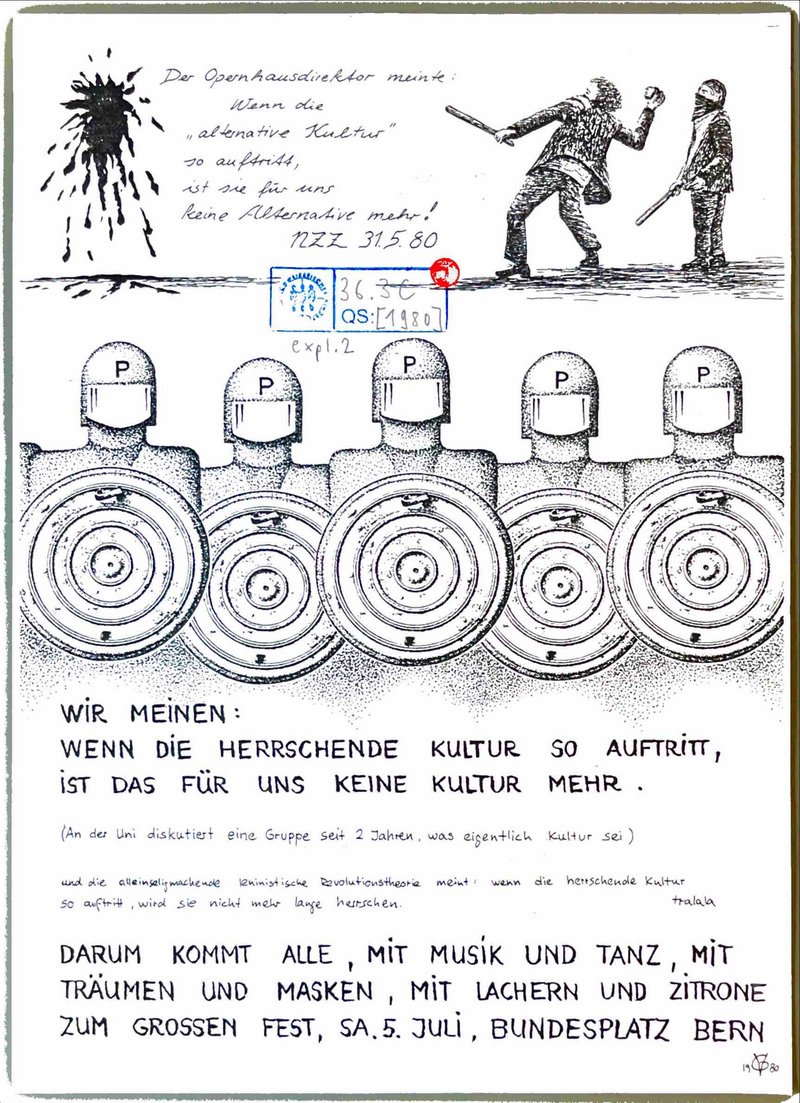 Der Opernhausdirektor meinte:
Wenn die
„alternative Kultur"
so auftritt,
ist sie für uns
keine Alternative mehr!
NZZ 31.5.80
36.3C
QS: [1980]
expl. 2
P P P P P
WIR MEINEN:
WENN DIE HERRSCHENDE KULTUR SO AUFTRITT,
IST DAS FÜR UNS KEINE KULTUR MEHR.
(An der Uni diskutiert eine Gruppe seit 2 Jahren, was eigentlich Kultur sei)
und die alleinseligmachende leninistische Revolutionstheorie meint: wenn die herrschende Kultur
so auftritt, wird sie nicht mehr lange herrschen. tralala
DARUM KOMMT ALLE, MIT MUSIK UND TANZ, MIT
TRÄUMEN UND MASKEN, MIT LACHERN UND ZITRONE
ZUM GROSSEN FEST, SA. 5. JULI, BUNDESPLATZ BERN
19 80